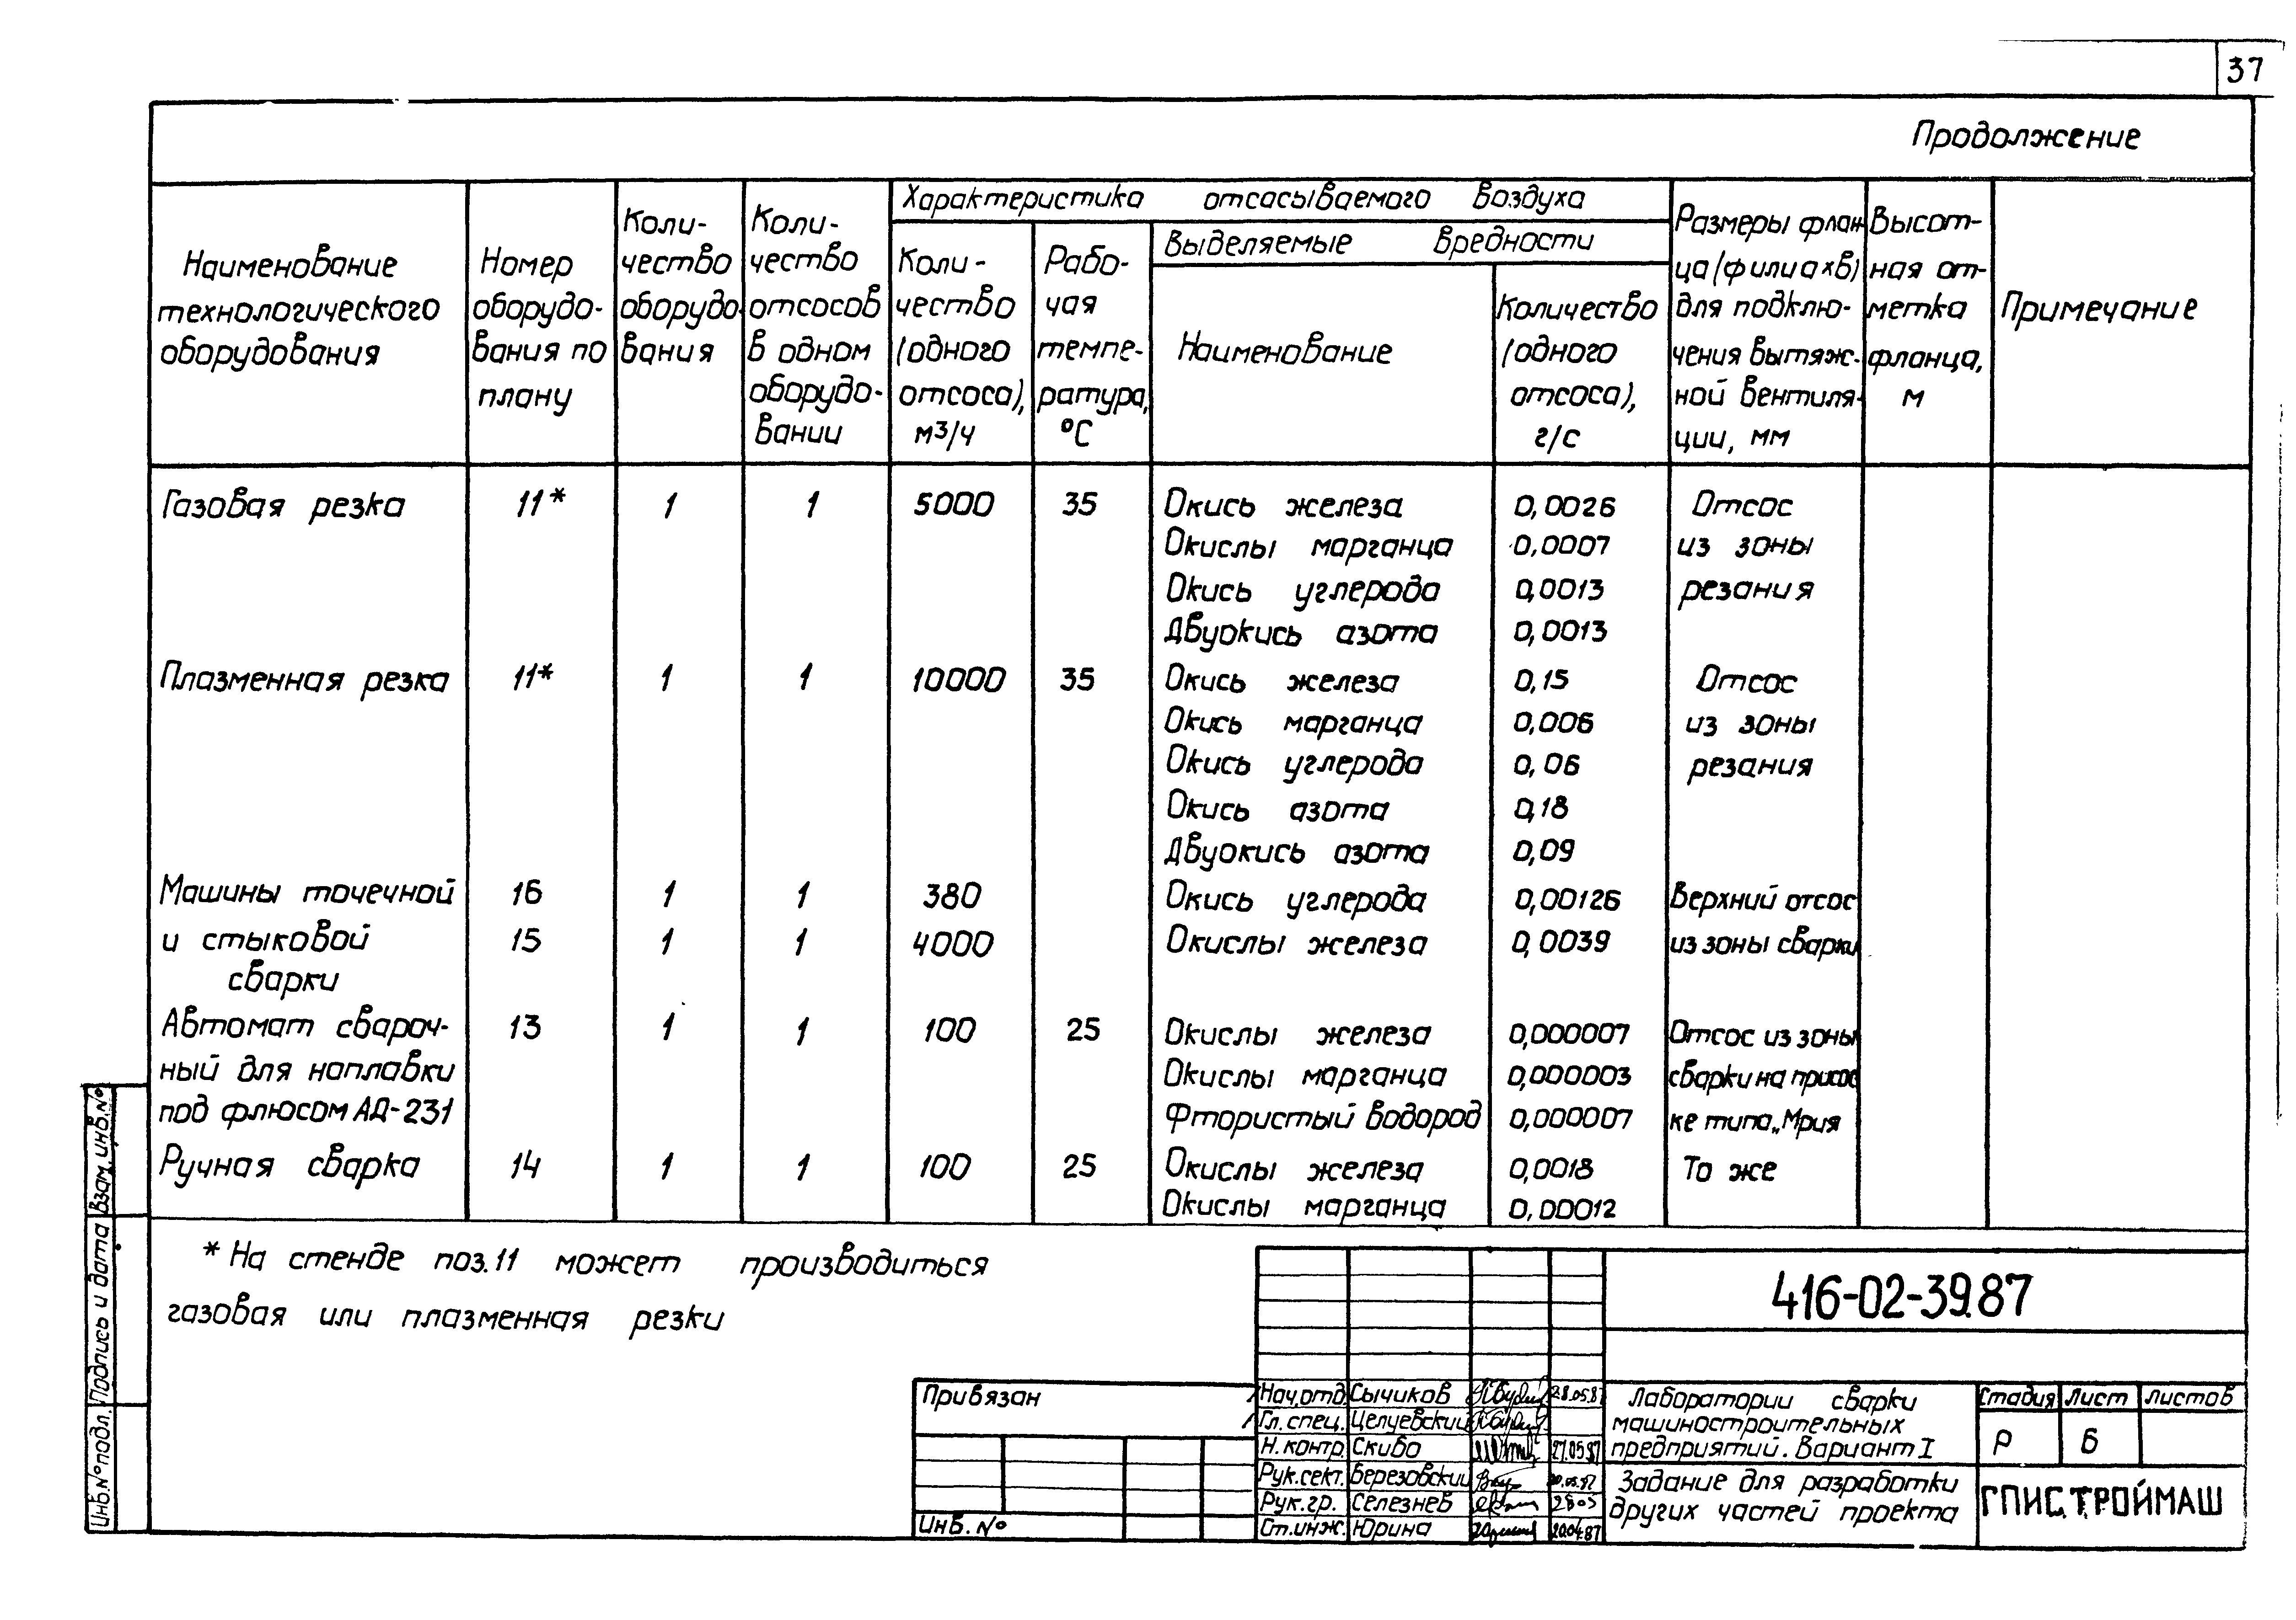 37
Продолжение
Наименование
технологического
оборудования
Номер
оборудо-
вания по
плану
Коли-
чество
оборудо-
вания
Коли-
чество
отсосов
в одном
оборудо-
вании
Характеристика отсасываемого воздуха
Коли-
чество
(одного
отсоса),
м3/ч
Рабо-
чая
темпе-
ратура,
°С
Выделяемые вредности
Наименование
Количество
(одного
отсоса),
г/с
Размеры флан-
ца (ф или ахв)
для подклю-
чения вытяж-
ной вентиля-
ции, мм
Высот-
ная от-
метка
фланца,
м
Примечание
Газовая резка 11* 1 1 5000 35 Окись железа 0,0026 Отсос
Окислы марганца 0,0007 из зоны
Окись углерода 0,0013 резания
Двуокись азота 0,0013
Плазменная резка 11* 1 1 10000 35 Окись железа 0,15 Отсос
Окись марганца 0,006 из зоны
Окись углерода 0,06 резания
Окись азота 0,18
Двуокись азота 0,09
Машины точечной 16 1 1 380 Окись углерода 0,00126 Верхний отсос
и стыковой 15 1 1 4000 Окислы железа 0,0039 из зоны сварки
сварки
Автомат свароч- 13 1 1 100 25 Окислы железа 0,000007 Отсос из зоны
ный для наплавки Окислы марганца 0,000003 сварки на присос
под флюсом АД-231 Фтористый водород 0,000007 ке типа „Мрия
Ручная сварка 14 1 1 100 25 Окислы железа 0,0018 То же
Окислы марганца 0,00012
* На стенде поз. 11 может производиться
газовая или плазменная резки
Инв.№ подл. Подпись и дата Взам. инв.№
416-02-39.87
Привязан
Инв. №
Нач.отд. Сычиков 28.05.87
Гл. спец. Целуевский
Н. контр. Скибо 27.05.87
Рук. сект. Березовский
Рук. гр. Селезнев
Ст. инж. Юрина 20.04.87
Лаборатории сварки
машиностроительных
предприятий. Вариант I
Задание для разработки
других частей проекта
Стадия Лист Листов
Р 6
ГПИСТРОЙМАШ